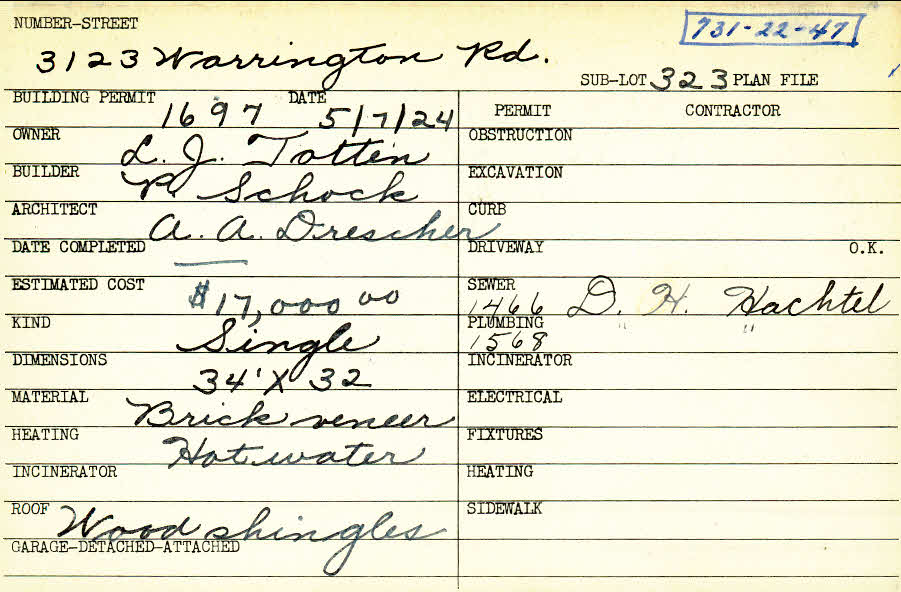 NUMBER-STREET
731-22-47
3123 Warrington Rd.
SUB-LOT 323 PLAN FILE
BUILDING PERMIT 1697 DATE 5/7/24
OWNER L. J. Totten
BUILDER P. Schock
ARCHITECT A. A. Drescher
DATE COMPLETED —
ESTIMATED COST $17,000 00
KIND Single
DIMENSIONS 34' X 32
MATERIAL Brick veneer
HEATING Hot water
INCINERATOR
ROOF Wood shingles
GARAGE-DETACHED-ATTACHED
PERMIT CONTRACTOR
OBSTRUCTION
EXCAVATION
CURB
DRIVEWAY O.K.
SEWER 1466 D. H. Hachtel
PLUMBING 1568 " "
INCINERATOR
ELECTRICAL
FIXTURES
HEATING
SIDEWALK